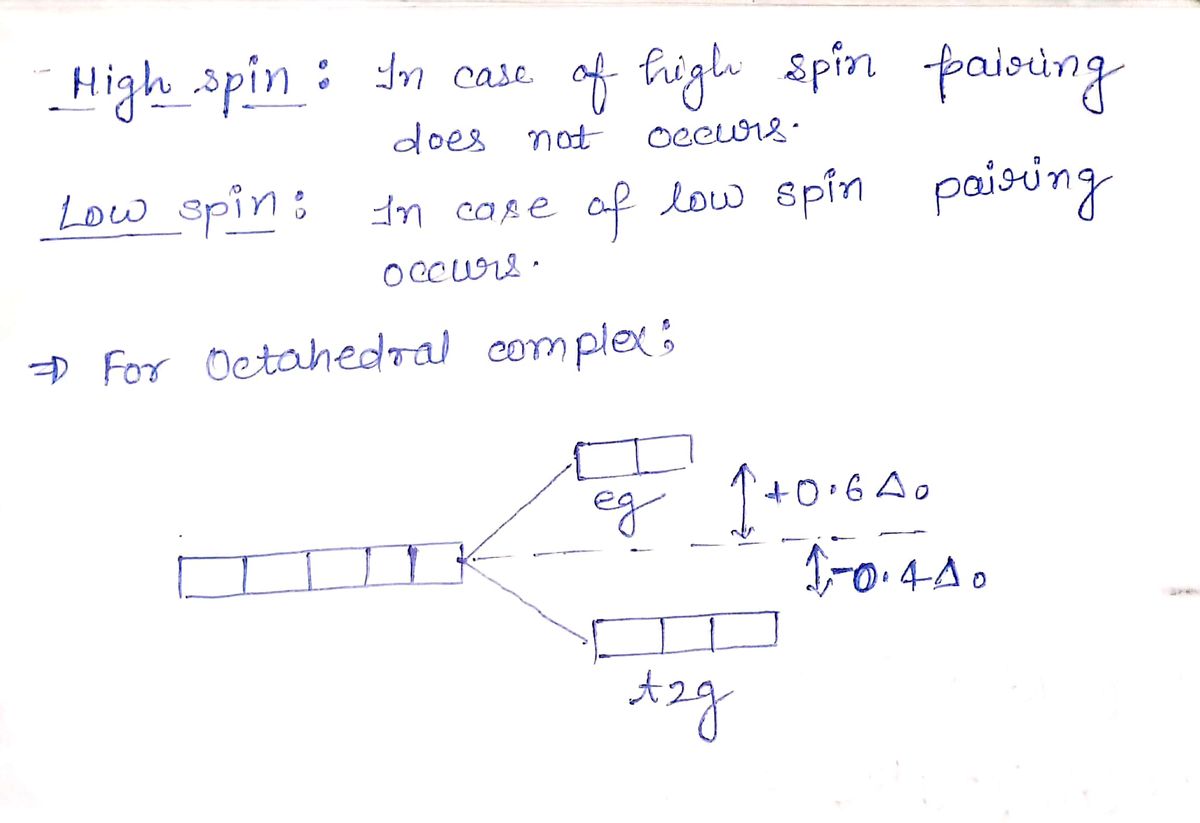 High spin : In case of high spin pairing
does not occurs.
Low spin : In case of low spin pairing
occurs.
⇒ For Octahedral complex ;
eg
+0.6 Δo
-0.4 Δo
t2g